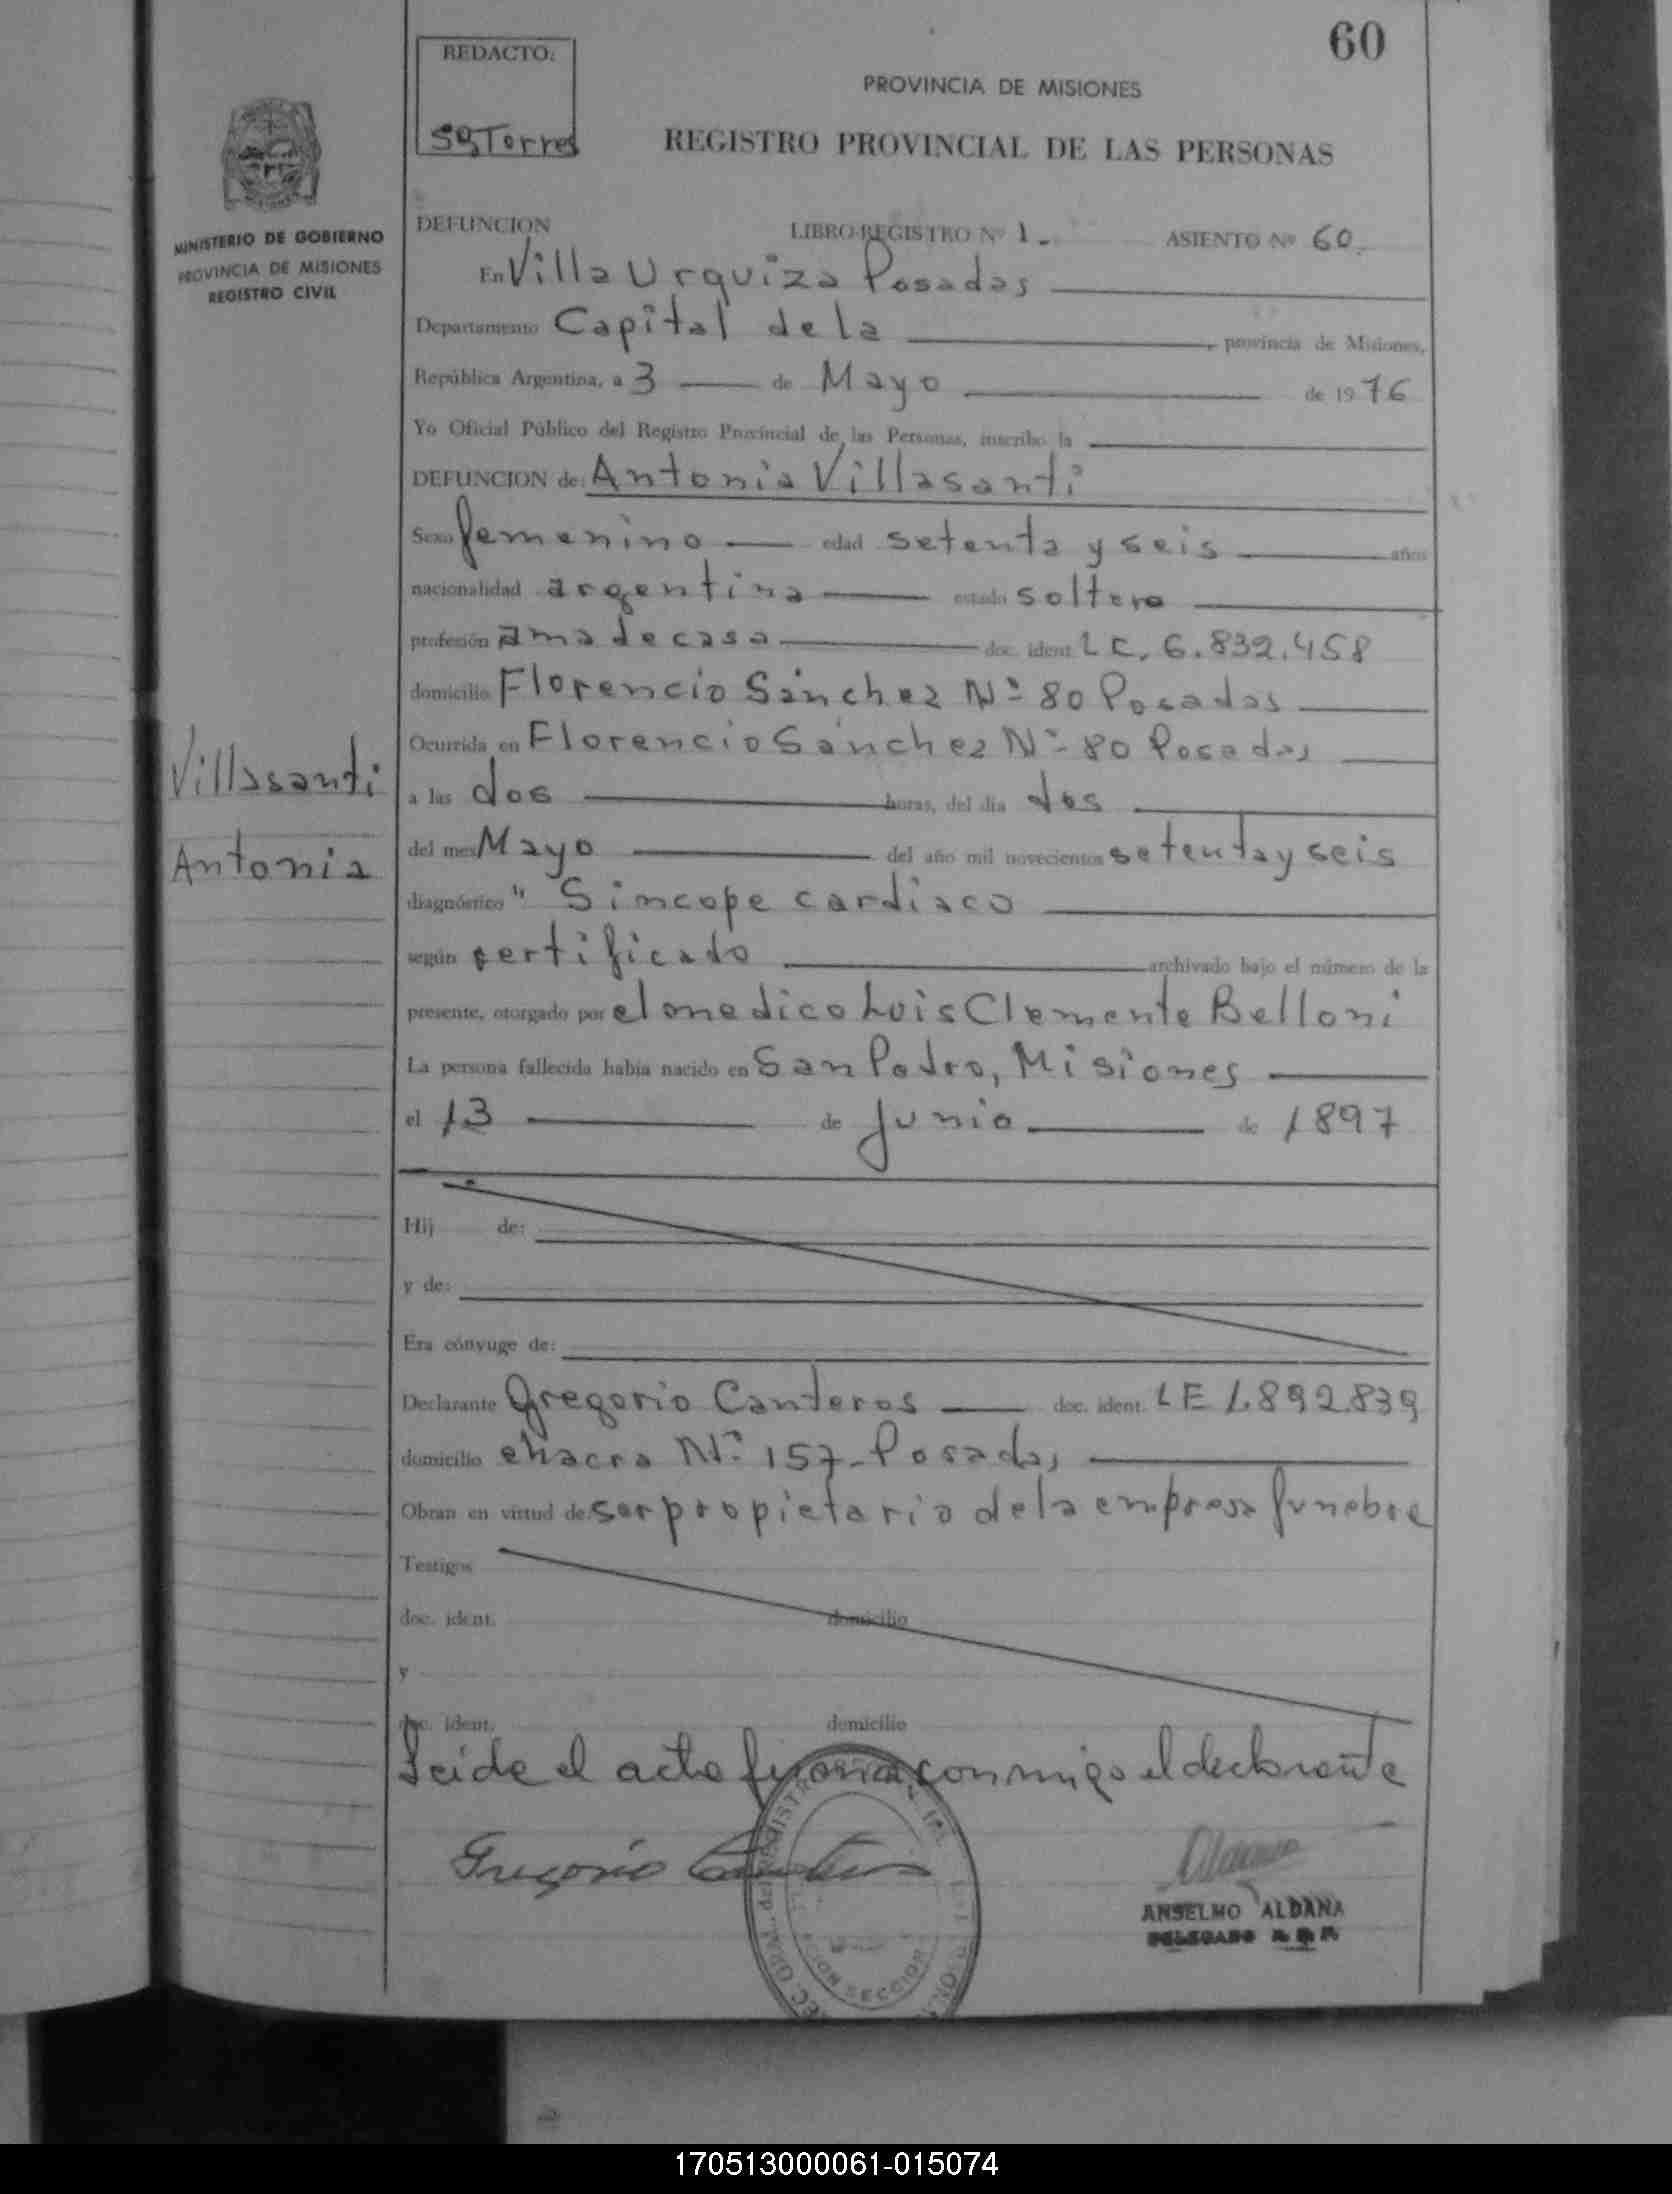 60
REDACTO:
SG Torres
PROVINCIA DE MISIONES
REGISTRO PROVINCIAL DE LAS PERSONAS
MINISTERIO DE GOBIERNO
PROVINCIA DE MISIONES
REGISTRO CIVIL
DEFUNCION LIBRO-REGISTRO Nº 1.- ASIENTO Nº 60.
En Villa Urquiza Posadas
Departamento Capital de la , provincia de Misiones,
República Argentina, a 3 de Mayo de 1976
Yo Oficial Público del Registro Provincial de las Personas, inscribo la
DEFUNCION de: Antonia Villasanti
Sexo femenino edad setenta y seis años
nacionalidad argentina estado soltera
profesión ama de casa doc. ident. L C. 6.832.458
domicilio Florencio Sánchez Nº 80 Posadas
Ocurrida en Florencio Sánchez Nº 80 Posadas
Villasanti
Antonia
a las dos horas, del día dos
del mes Mayo del año mil novecientos setenta y seis
diagnóstico " Sincope cardiaco
según certificado archivado bajo el número de la
presente, otorgado por el medico Luis Clemente Belloni
La persona fallecida había nacido en San Pedro, Misiones
el 13 de Junio de 1897
Hij de:
y de:
Era cónyuge de:
Declarante Gregorio Canteros doc. ident. L E 1.892.839
domicilio chacra Nº 157- Posadas
Obran en virtud de: ser propietario de la empresa funebre
Testigos
doc. ident. domicilio
y
doc. ident. domicilio
Leída el acta firma conmigo el declarante
Gregorio Canteros
ANSELMO ALDANA
DELEGADO R. P. P.
SECCION
170513000061-015074